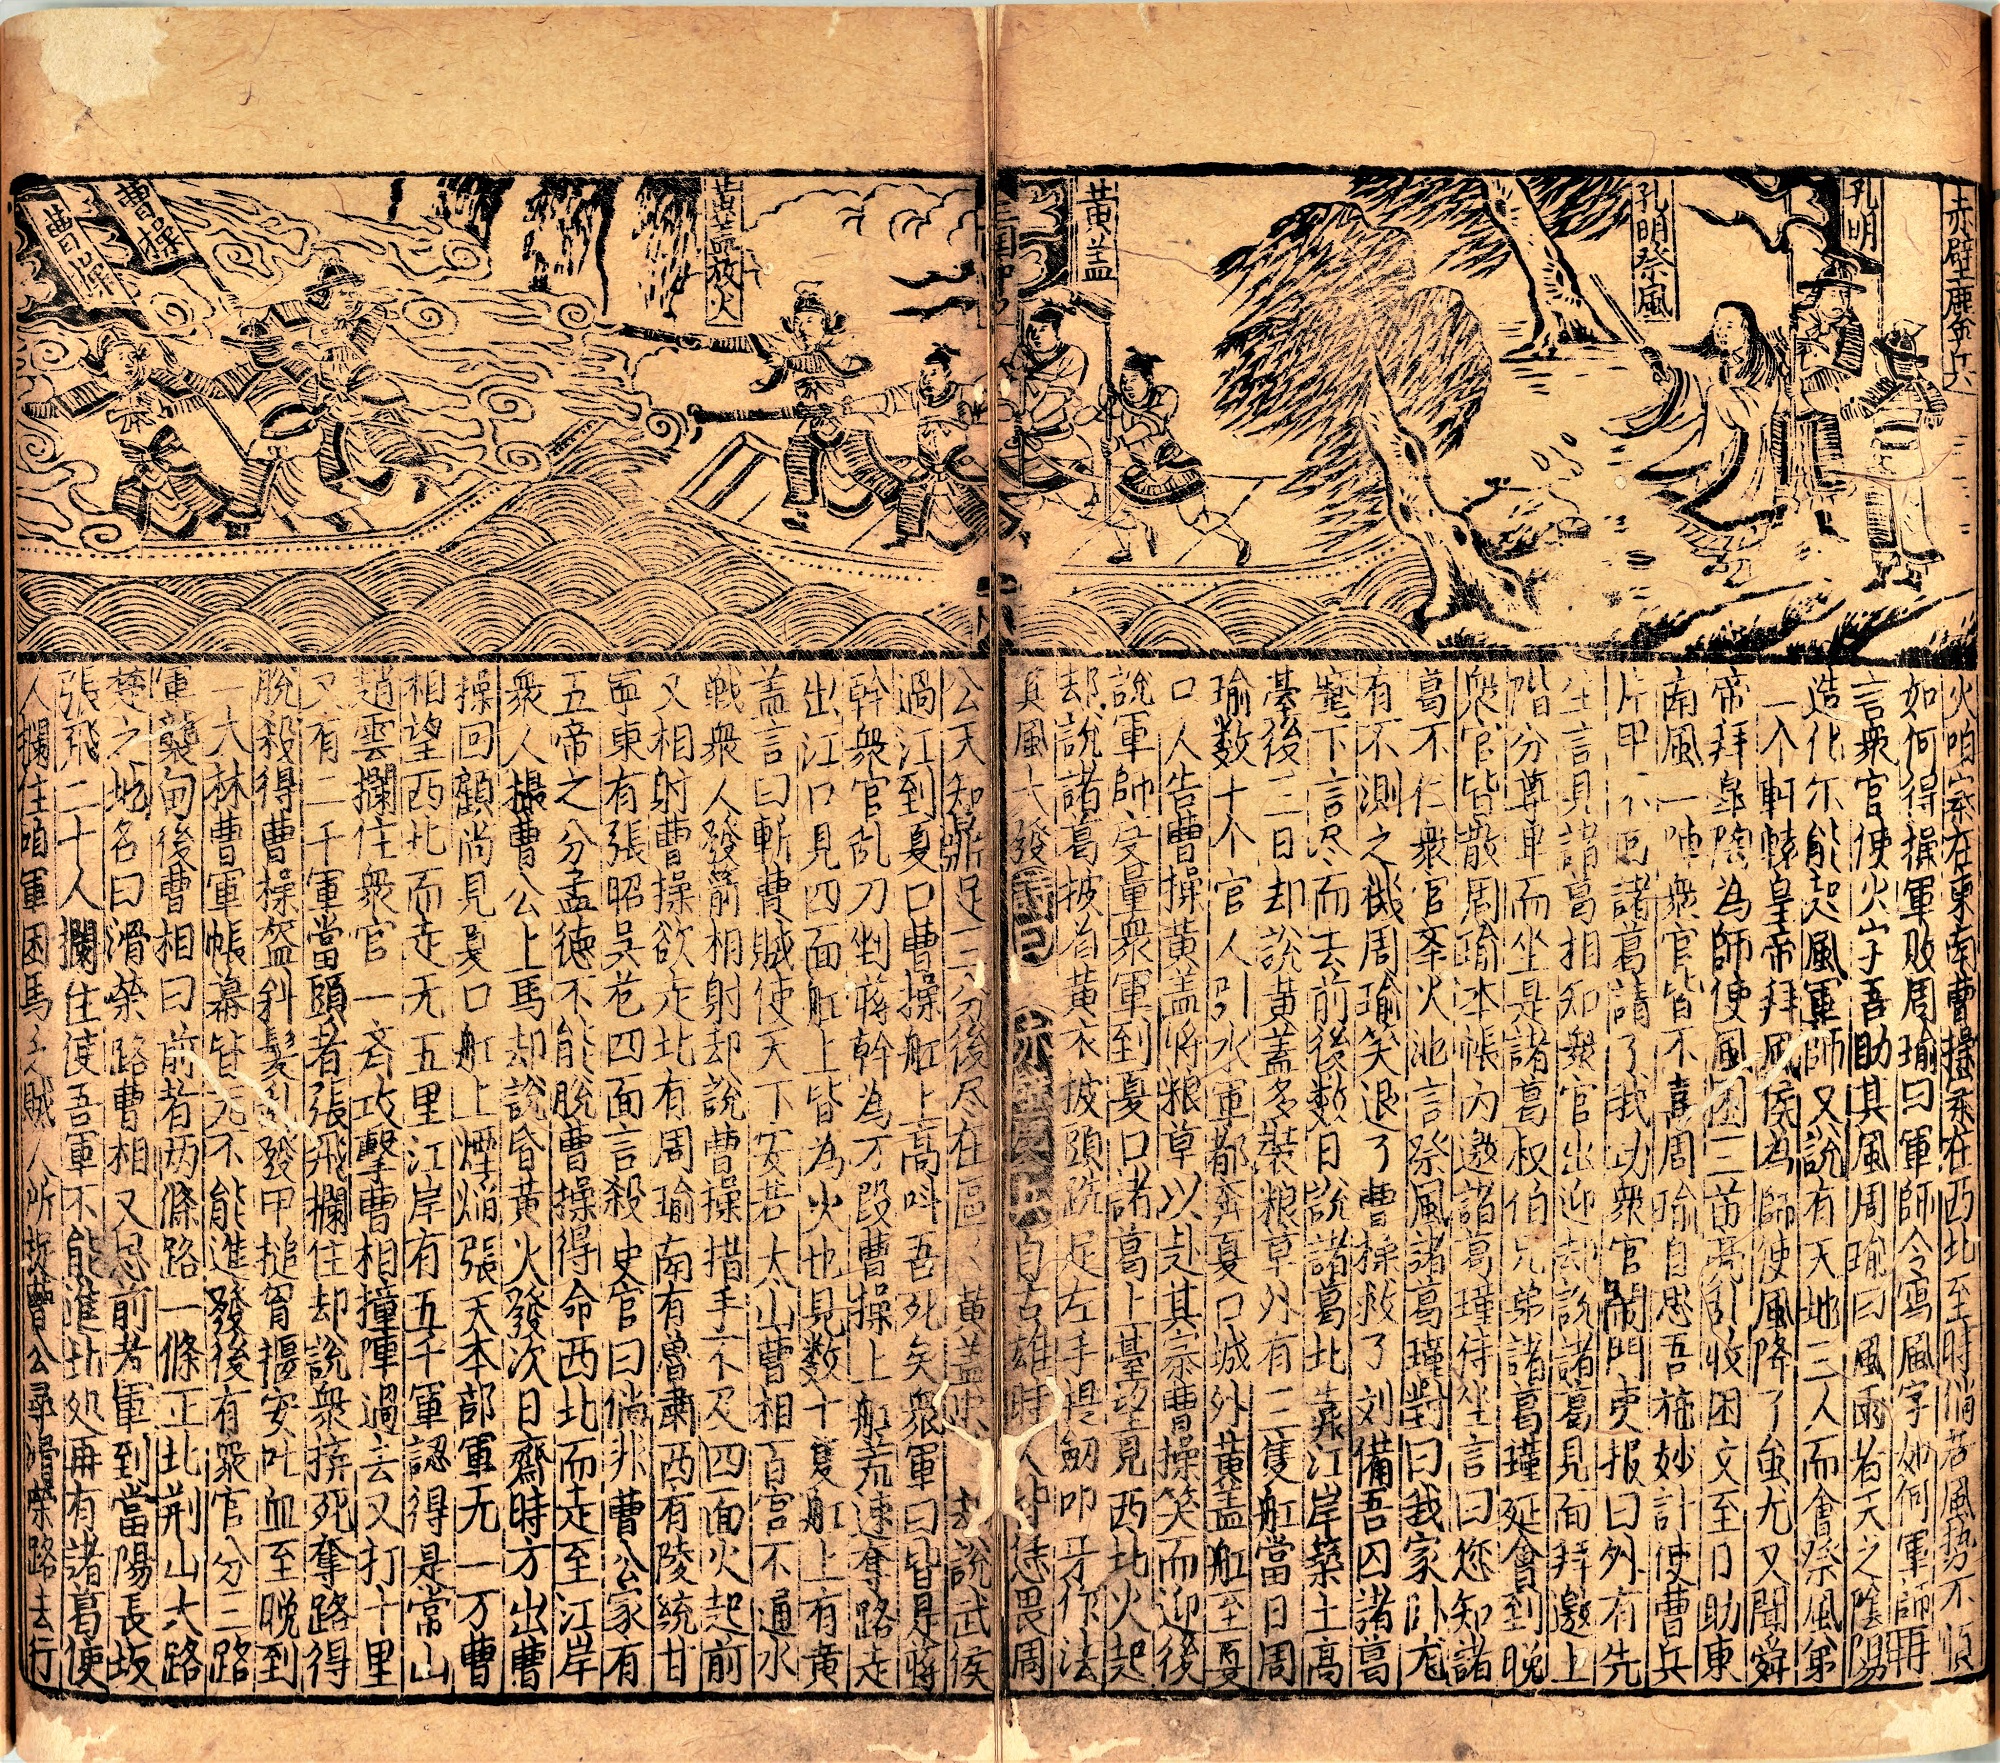 赤壁鏖兵
孔明
孔明祭風
黃盖
三国中
黃盖放火
曹操
曹操
火咱寨在東南曹操寨在西北至時倘若風势不順
如何得操軍敗周瑜曰軍師令寫風字如何軍師再
言衆官使火字吾助其風周瑜曰風雨者天之隂陽
造化尔能起風軍師又說有天地三人而會祭風第
一个軒轅皇帝拜風侯為師使風降了蚩尤又聞舜
帝拜皐陶為師使風困三苗亮引收图文至日助東
南風一陣衆官皆不喜周瑜自思吾施妙計使曹兵
片甲不回諸葛請了我功衆官閙門吏报曰外有先
生言見諸葛相知衆官出迎却說諸葛見面拜邀上
階分尊卑而坐是諸葛叔伯兄弟諸葛瑾延會到晚
衆官皆散周瑜本帳内邀諸葛瑾待坐言曰您知諸
葛不仁衆官筆火池言祭風諸葛瑾對曰我家卧尨
有不測之機周瑜笑退了曹操救了刘備吾囚諸葛
麾下言尽而去前後数日說諸葛北靠江岸築土高
䑓後三日却說黃蓋多裝粮草外有三隻舡當日周
瑜数十个官人引水軍都奔夏口城外黃蓋舡至夏
口人告曹操黃蓋將粮草以赴其寨曹操笑而迎後
說軍師受量衆軍到夏口諸葛上䑓望見西北火起
却說諸葛披着黃衣披頭跣足左手提劒叩牙作法
其風大發 詩曰 赤壁鏖兵自古雄時人皆恁畏周
公天知鼎足三分後尽在區〻黃蓋忠 却說武侯
過江到夏口曹操舡上高呌吾死矣衆軍曰皆是蔣
幹衆官乱刀剉蔣幹為万段曹操上舡荒速奪路走
出江口見四面舡上皆為火也見数十隻舡上有黃
盖言曰斬曹賊使天下安若太山曹相百官不通水
戰衆人發箭相射却說曹操措手不及四面火起前
又相射曹操欲走北有周瑜南有魯肅西有陵統甘
寧東有張昭吳范四面言殺史官曰倘非曹公家有
五帝之分孟德不能脫曹操得命西北而走至江岸
衆人撮曹公上馬却說昏黃火發次日齋時方出曹
操回顧尚見夏口舡上煙焰張天本部軍无一万曹
相望西北而走无五里江岸有五千軍認得是常山
趙雲攔住衆官一斉攻擊曹相撞陣過去又打十里
又有二千軍當頭者張飛攔住却說衆撞死奪路得
脫殺得曹操盔斜髮乱發甲搥胷摳安吐血至晚到
一大林曹軍帳幕皆无不能進發後有衆官分三路
軍襲甸後曹相曰前者两條路一條正北荊山大路
梵之地名曰滑榮路曹相又思前者軍到當陽長坂
張飛二十人攔住使吾軍不能進北処再有諸葛使
人攔住咱軍困馬乏賊人所拆曹公尋滑榮路去行